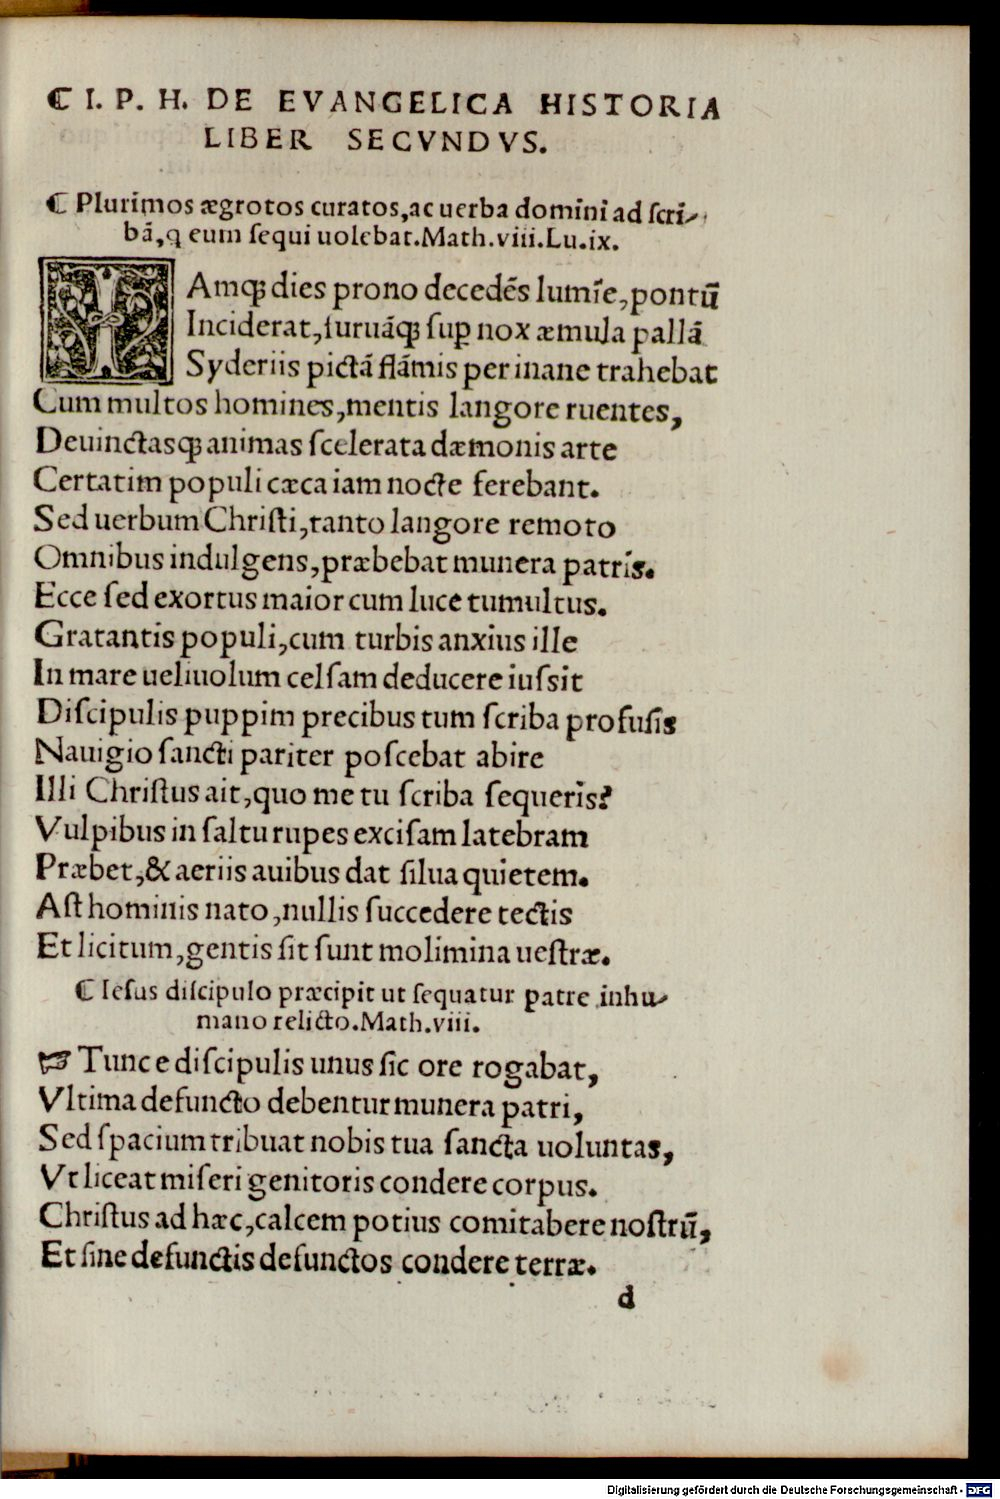 ☾ I. P. H. DE EVANGELICA HISTORIA
LIBER SECVNDVS.
☾ Plurimos ægrotos curatos, ac uerba domini ad ſcri-
bā, q eum ſequi uolebat. Math. viii. Lu. ix.
IAmqꝫ dies prono decedēs lumīe, pontū
Inciderat, furuāqꝫ ſuꝑ nox æmula pallā
Syderiis pictā flāmis per inane trahebat
Cum multos homines, mentis langore ruentes,
Deuinctasqꝫ animas ſcelerata dæmonis arte
Certatim populi cæca iam nocte ferebant.
Sed uerbum Chriſti, tanto langore remoto
Omnibus indulgens, præbebat munera patris.
Ecce ſed exortus maior cum luce tumultus.
Gratantis populi, cum turbis anxius ille
In mare ueliuolum celſam deducere iuſsit
Diſcipulis puppim precibus tum ſcriba profuſis
Nauigio ſancti pariter poſcebat abire
Illi Chriſtus ait, quo me tu ſcriba ſequeris?
Vulpibus in ſaltu rupes exciſam latebram
Præbet, & aeriis auibus dat ſilua quietem.
Aſt hominis nato, nullis ſuccedere tectis
Et licitum, gentis ſit ſunt molimina ueſtræ.
☾ Ieſus diſcipulo præcipit ut ſequatur patre inhu-
mano relicto. Math. viii.
☞ Tunc e diſcipulis unus ſic ore rogabat,
Vltima defuncto debentur munera patri,
Sed ſpacium tribuat nobis tua ſancta uoluntas,
Vt liceat miſeri genitoris condere corpus.
Chriſtus ad hæc, calcem potius comitabere noſtrū,
Et ſine defunctis defunctos condere terræ.
d
Digitalisierung gefördert durch die Deutsche Forschungsgemeinschaft - DFG